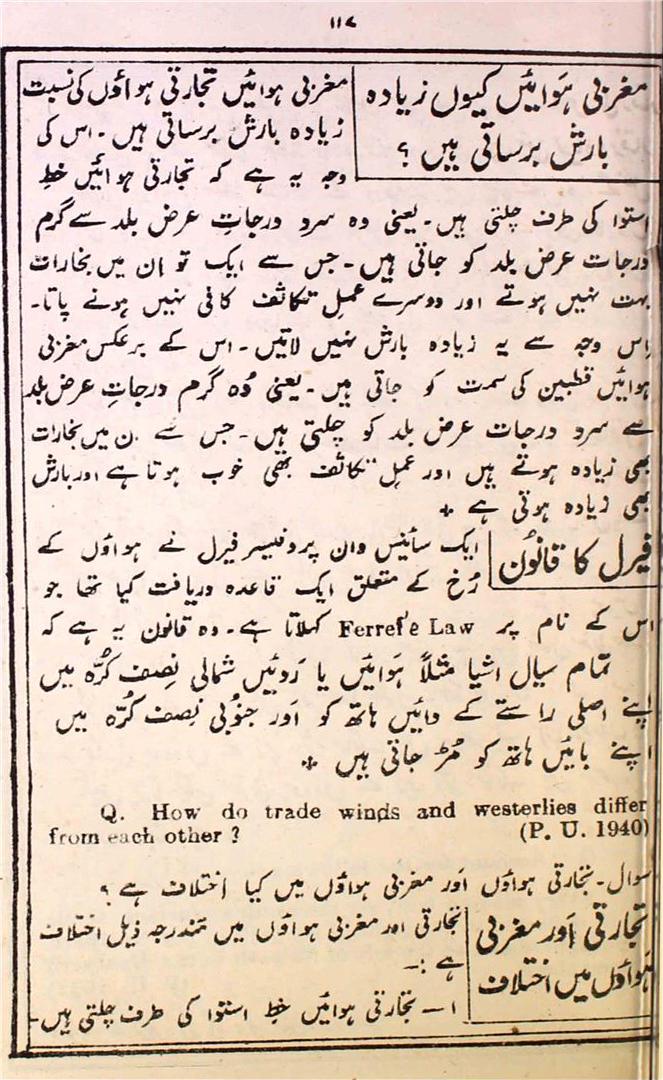 ۱۱۷
مغربی ہَوائیں کیوں زیادہ
بارش برساتی ہیں ؟
مغربی ہوائیں تجارتی ہواؤں کی نسبت
زیادہ بارش برساتی ہیں۔ اس کی
وجہ یہ ہے کہ تجارتی ہوائیں خطِ
استوا کی طرف چلتی ہیں۔ یعنی وہ سرد درجاتِ عرض بلد سے گرم
درجات عرض بلد کو جاتی ہیں۔ جس سے ایک تو اِن میں بخارات
بہت نہیں ہوتے اور دوسرے عملِ تکاثف کافی نہیں ہونے پاتا۔
اِس وجہ سے یہ زیادہ بارش نہیں لاتیں۔ اس کے برعکس مغربی
ہوائیں قطبین کی سمت کو جاتی ہیں۔ یعنی وُہ گرم درجاتِ عرض بلد
سے سرد درجات عرض بلد کو چلتی ہیں۔ جس سے اِن میں بخارات
بھی زیادہ ہوتے ہیں اور عملِ تکاثف بھی خوب ہوتا ہے اور بارش
بھی زیادہ ہوتی ہے +
فیرل کا قانُون
ایک سائینس دان پروفیسر فیرل نے ہواؤں کے
رُخ کے متعلق ایک قاعدہ دریافت کیا تھا جو
اس کے نام پر Ferrel's Law کہلاتا ہے۔ وہ قانون یہ ہے کہ
تمام سیال اشیا مثلاً ہَوائیں یا رَوئیں شمالی نِصف کُرّہ میں
اپنے اصلی راستے کے دائیں ہاتھ کو اَور جنُوبی نِصف کُرّہ میں
اپنے بائیں ہاتھ کو مُڑ جاتی ہیں +
Q. How do trade winds and westerlies differ
from each other ? (P. U. 1940)
سوال۔ تجارتی ہواؤں اَور مغربی ہواؤں میں کیا اختلاف ہے ؟
تجارتی اَور مغربی
ہَواؤں میں اختلاف
تجارتی اور مغربی ہواؤں میں مندرجہ ذیل اختلاف
ہے :۔
۱ ۔ تجارتی ہوائیں خطِ استوا کی طرف چلتی ہیں۔